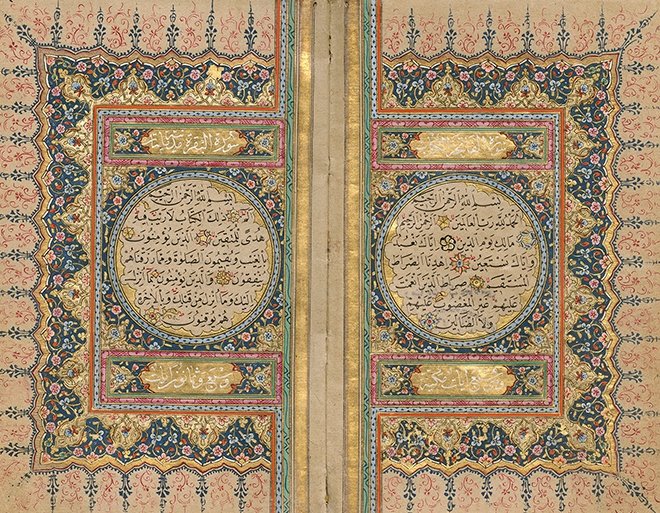 سورة الفاتحة
بسم الله الرحمن الرحيم
الحمد لله رب العالمين الرحمن الرحيم
مالك يوم الدين اياك نعبد
واياك نستعين اهدنا الصراط
المستقيم صراط الذين انعمت
عليهم غير المغضوب عليهم
ولا الضالين
وهي سبع ايات مكية
سورة البقرة مدنية
بسم الله الرحمن الرحيم
الم ذلك الكتاب لا ريب فيه
هدى للمتقين الذين يؤمنون
بالغيب ويقيمون الصلوة ومما رزقناهم
ينفقون والذين يؤمنون بما انزل
اليك وما انزل من قبلك وبالاخرة
هم يوقنون
وثمانون ايات